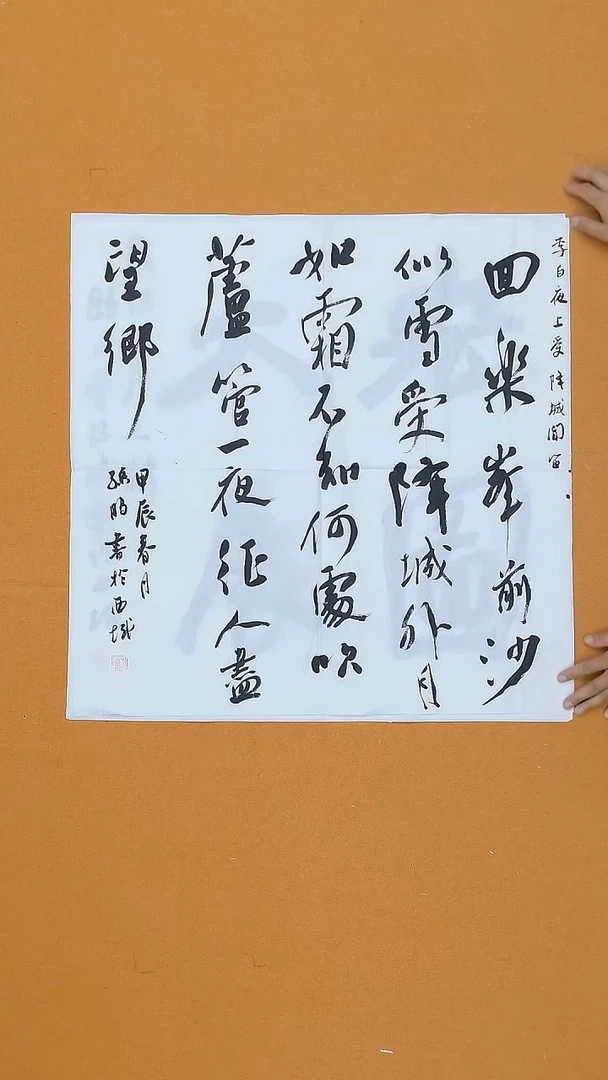 李白夜上受降城聞笛
回樂峯前沙
似雪受降城外月
如霜不知何處吹
蘆管一夜征人盡
望鄉
甲辰春月
書於西域